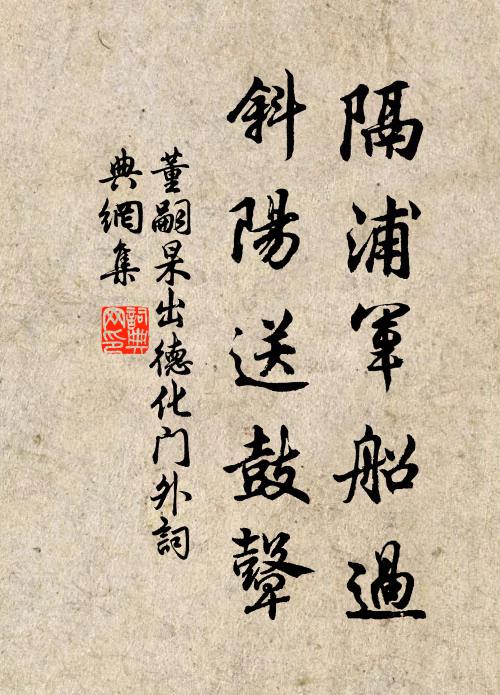 隔浦軍船過
斜陽送鼓聲
董嗣杲出德化門外詞
典網集
詞典
网印